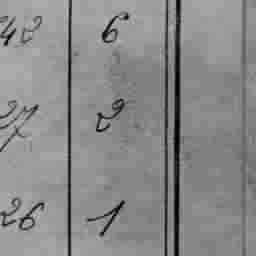 42 6
27 2
26 1